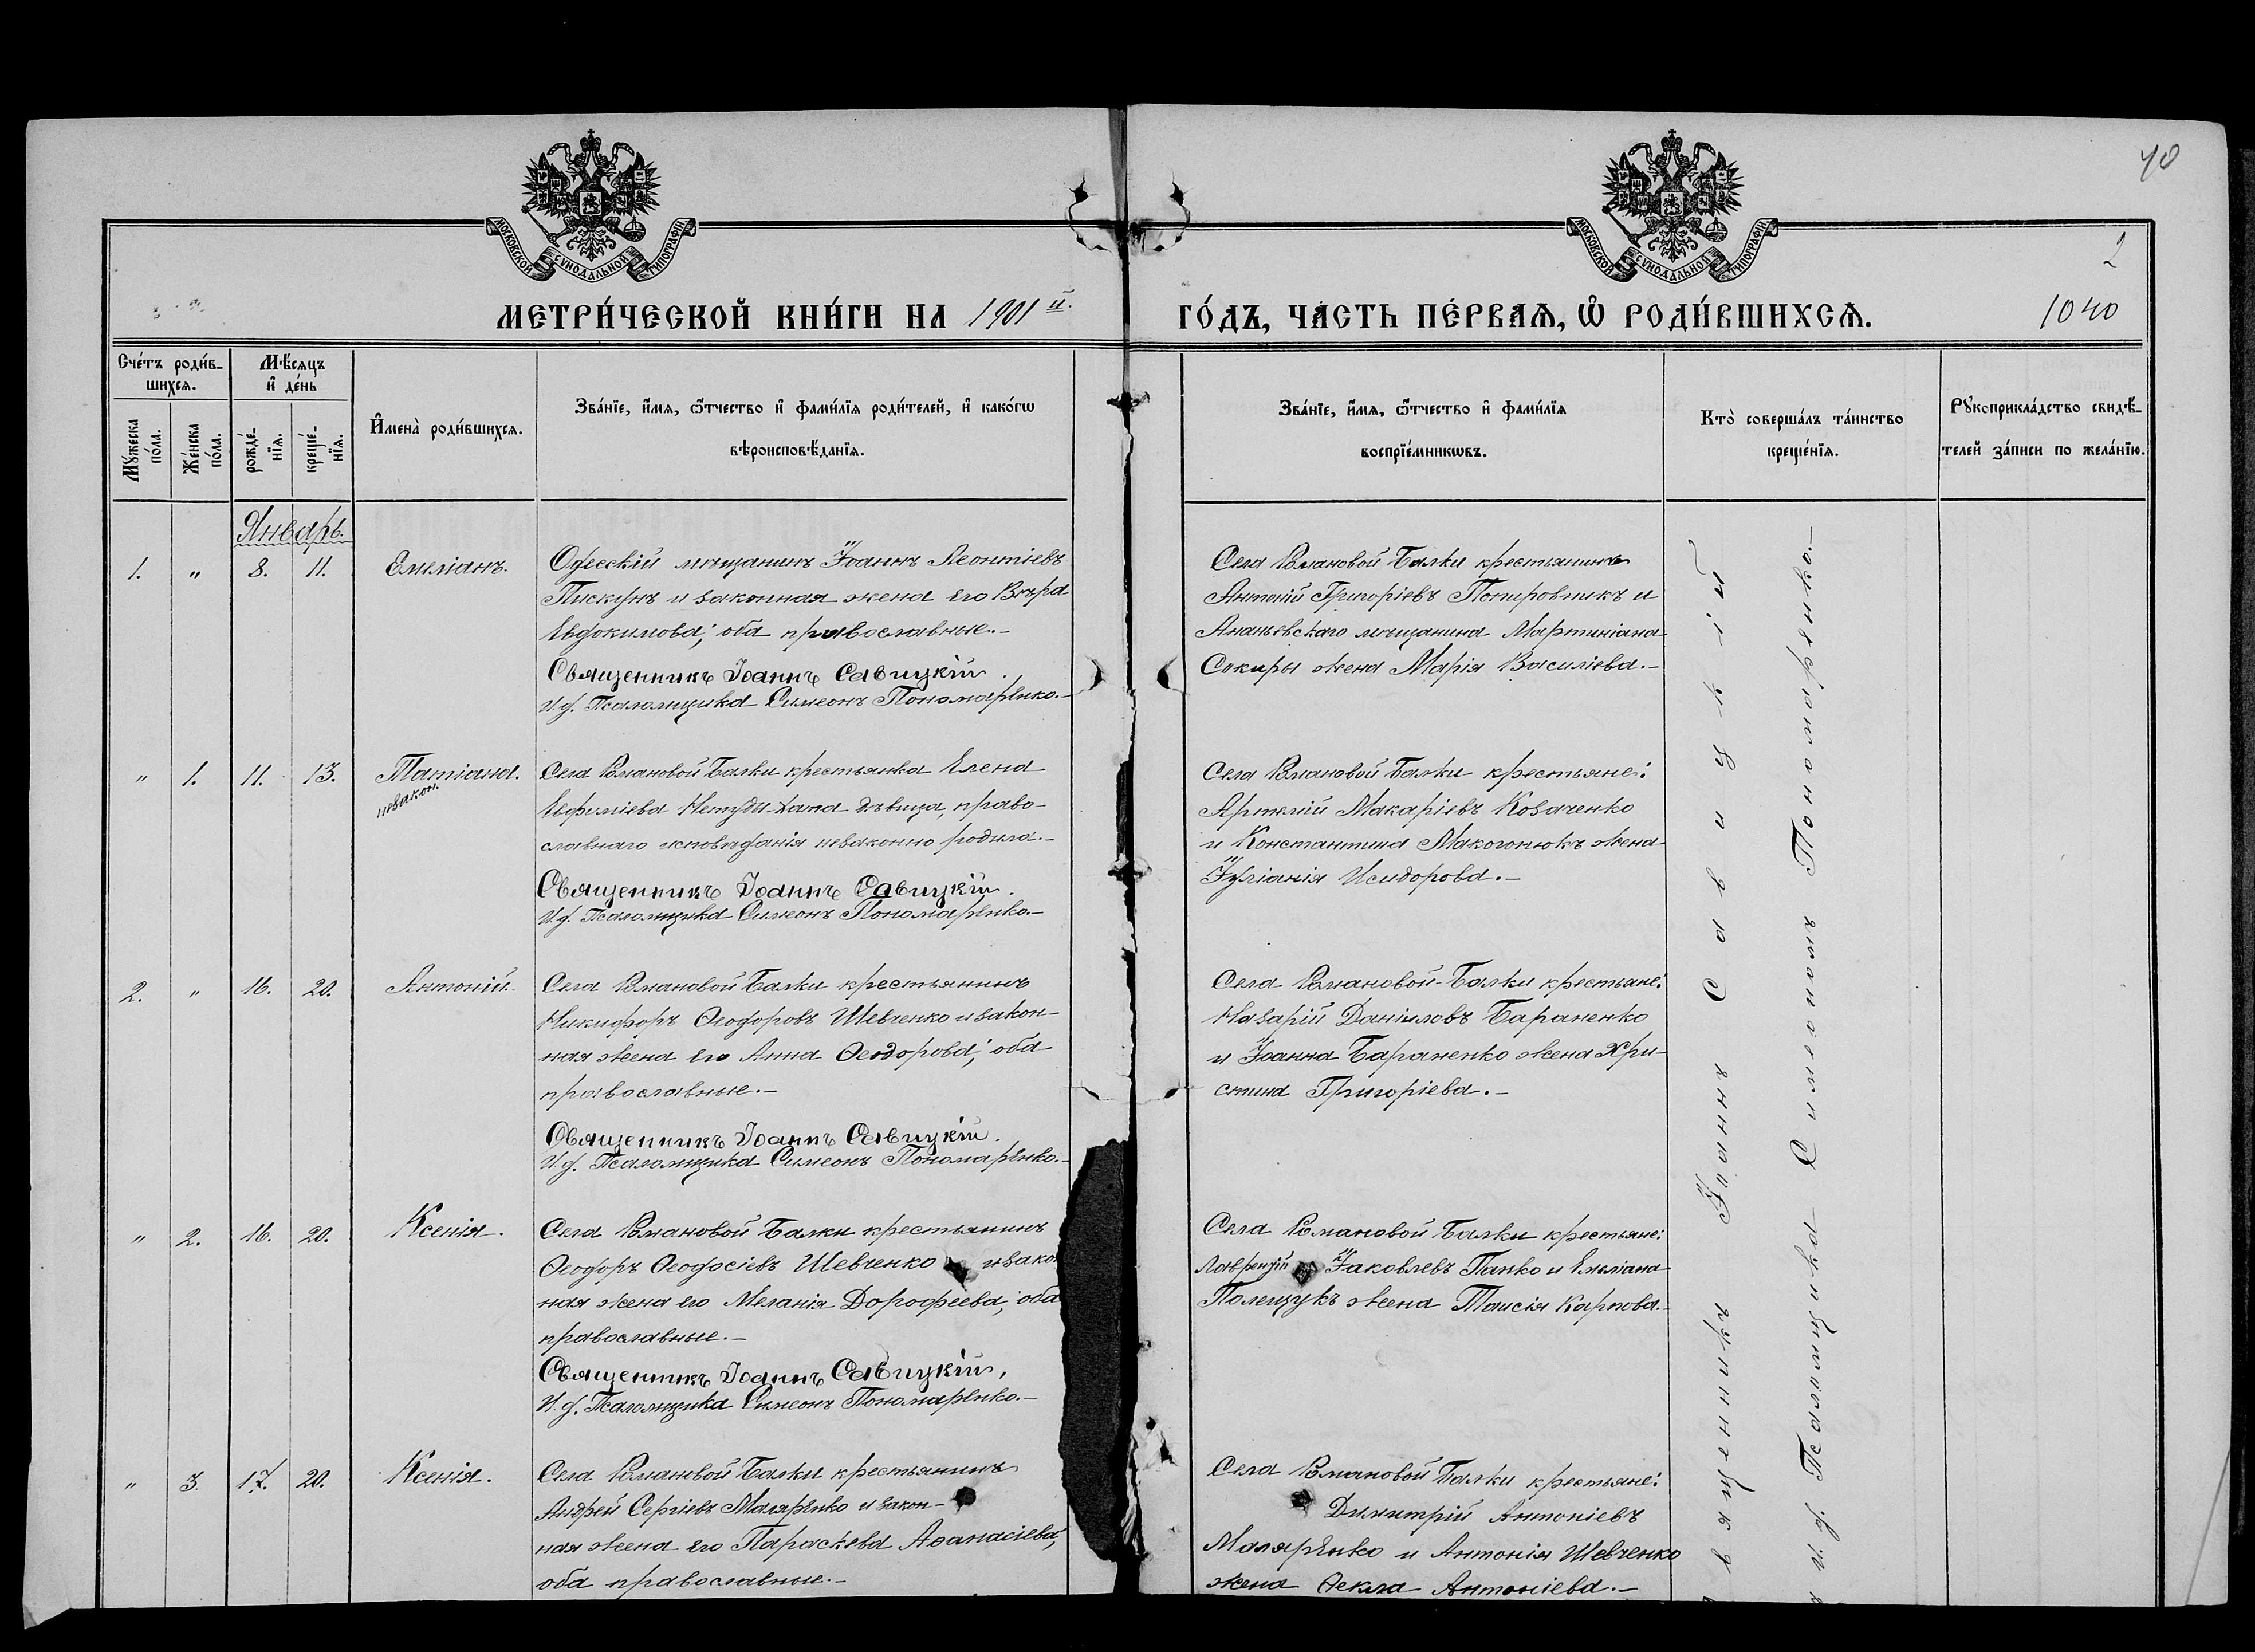 40
МОСКОВСКОЙ СѴНОДАЛЬНОЙ ТИПОГРАФІИ.
МОСКОВСКОЙ СѴНОДАЛЬНОЙ ТИПОГРАФІИ.
2
МЕТРИ́ЧЕСКОЙ КНИ́ГИ НА 1901й. ГО́ДЪ, ЧА́СТЬ ПЕ́РВАѦ, Ѽ РОДИ́ВШИХСѦ.
1040
Сче́тъ роди́в-
шихсѧ.
Мѣ́сѧцъ
и҆ де́нь
Мꙋ́жеска
по́ла.
Же́нска
по́ла.
рожде́-
нїѧ.
креще́-
нїѧ.
И҆мена̀ роди́вшихсѧ.
Зва́нїе, и҆́мѧ, ѻ҆́тчество и҆ фами́лїѧ роди́телей, и҆ како́гѡ
вѣроисповѣ́данїѧ.
Зва́нїе, и҆́мѧ, ѻ҆́тчество и҆ фами́лїѧ
воспрїе́мникѡвъ.
Кто̀ соверша́лъ та́инство
креще́нїѧ.
Рꙋкоприкла́дство свидѣ́-
телей за́писи по жела́нїю.
Январь.
1. " 8. 11. Емеліанъ.
Одесскій мѣщанинъ Іоаннъ Леонтіевъ
Пискунъ и законная жена его Вѣра
Евдокимова; оба православные.-
Священникъ Іоаннъ Савицкій.
И.д. Псаломщика Симеонъ Пономаренко.-
Села Романовой Балки крестьянинъ
Антоній Григоріевъ Попировникъ и
Ананьевскаго мѣщанина Мартиніана
Сокиры жена Марія Василіева.-
" 1. 11. 13. Татіана.
незакон.
Села Романовой Балки крестьянка Елена
Евфиміева Нетудыхата дѣвица, право-
славнаго исповѣданія незаконно родила.-
Священникъ Іоаннъ Савицкій.
И.д. Псаломщика Симеонъ Пономаренко.-
Села Романовой Балки крестьяне:
Артемій Макаріевъ Козаченко
и Константина Макогонюкъ жена
Іуліанія Исидорова.-
2. " 16. 20. Антоній.
Села Романовой Балки крестьянинъ
Никифоръ Ѳеодоровъ Шевченко и закон-
ная жена его Анна Ѳеодорова; оба
православные.-
Священникъ Іоаннъ Савицкій.
И.д. Псаломщика Симеонъ Пономаренко.-
Села Романовой-Балки крестьяне:
Назарій Даніиловъ Бараненко
и Іоанна Бараненко жена Хри-
стина Григоріева.-
" 2. 16. 20. Ксенія.
Села Романовой Балки крестьянинъ
Ѳеодоръ Ѳеодосіевъ Шевченко и закон
ная жена его Меланія Дорофеева; оба
православные.-
Священникъ Іоаннъ Савицкій,
И.д. Псаломщика Симеонъ Пономаренко.-
Села Романовой Балки крестьяне:
Лаврентій Іаковлевъ Папко и Емеліана
Полещукъ жена Таисія Карпова.-
" 3. 17. 20. Ксенія.
Села Романовой Балки крестьянинъ
Андрей Сергіевъ Маляренко и закон-
ная жена его Параскева Аѳанасіева;
оба православные.-
Села Романовой Балки крестьяне:
Димитрій Антоніевъ
Маляренко и Антонія Шевченко
жена Ѳекла Антоніева.-
Священникъ Іоаннъ Савицкій
и и.д. Псаломщика Симеонъ Пономаренко.-